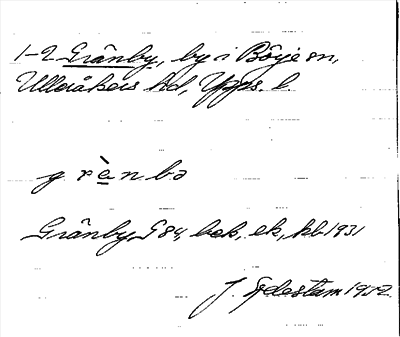 1-2 Grånby, by i Böje sn,
Ulleråkers hd, Upps. l.
g r è n b ə
Grånby, G 84, bok, ek, kb 1931
J. Sjelestam 1952.